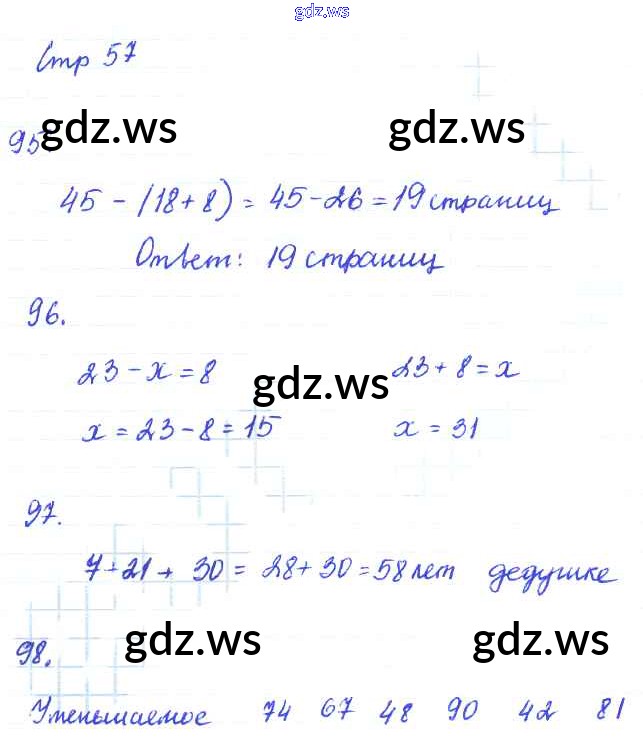 gdz.ws
Стр 57
95. gdz.ws gdz.ws
45 - (18 + 8) = 45 - 26 = 19 страниц
Ответ: 19 страниц
96.
23 - x = 8 gdz.ws 23 + 8 = x
x = 23 - 8 = 15 x = 31
97.
7 + 21 + 30 = 28 + 30 = 58 лет дедушке
98. gdz.ws gdz.ws
Уменьшаемое 74 67 48 90 42 81